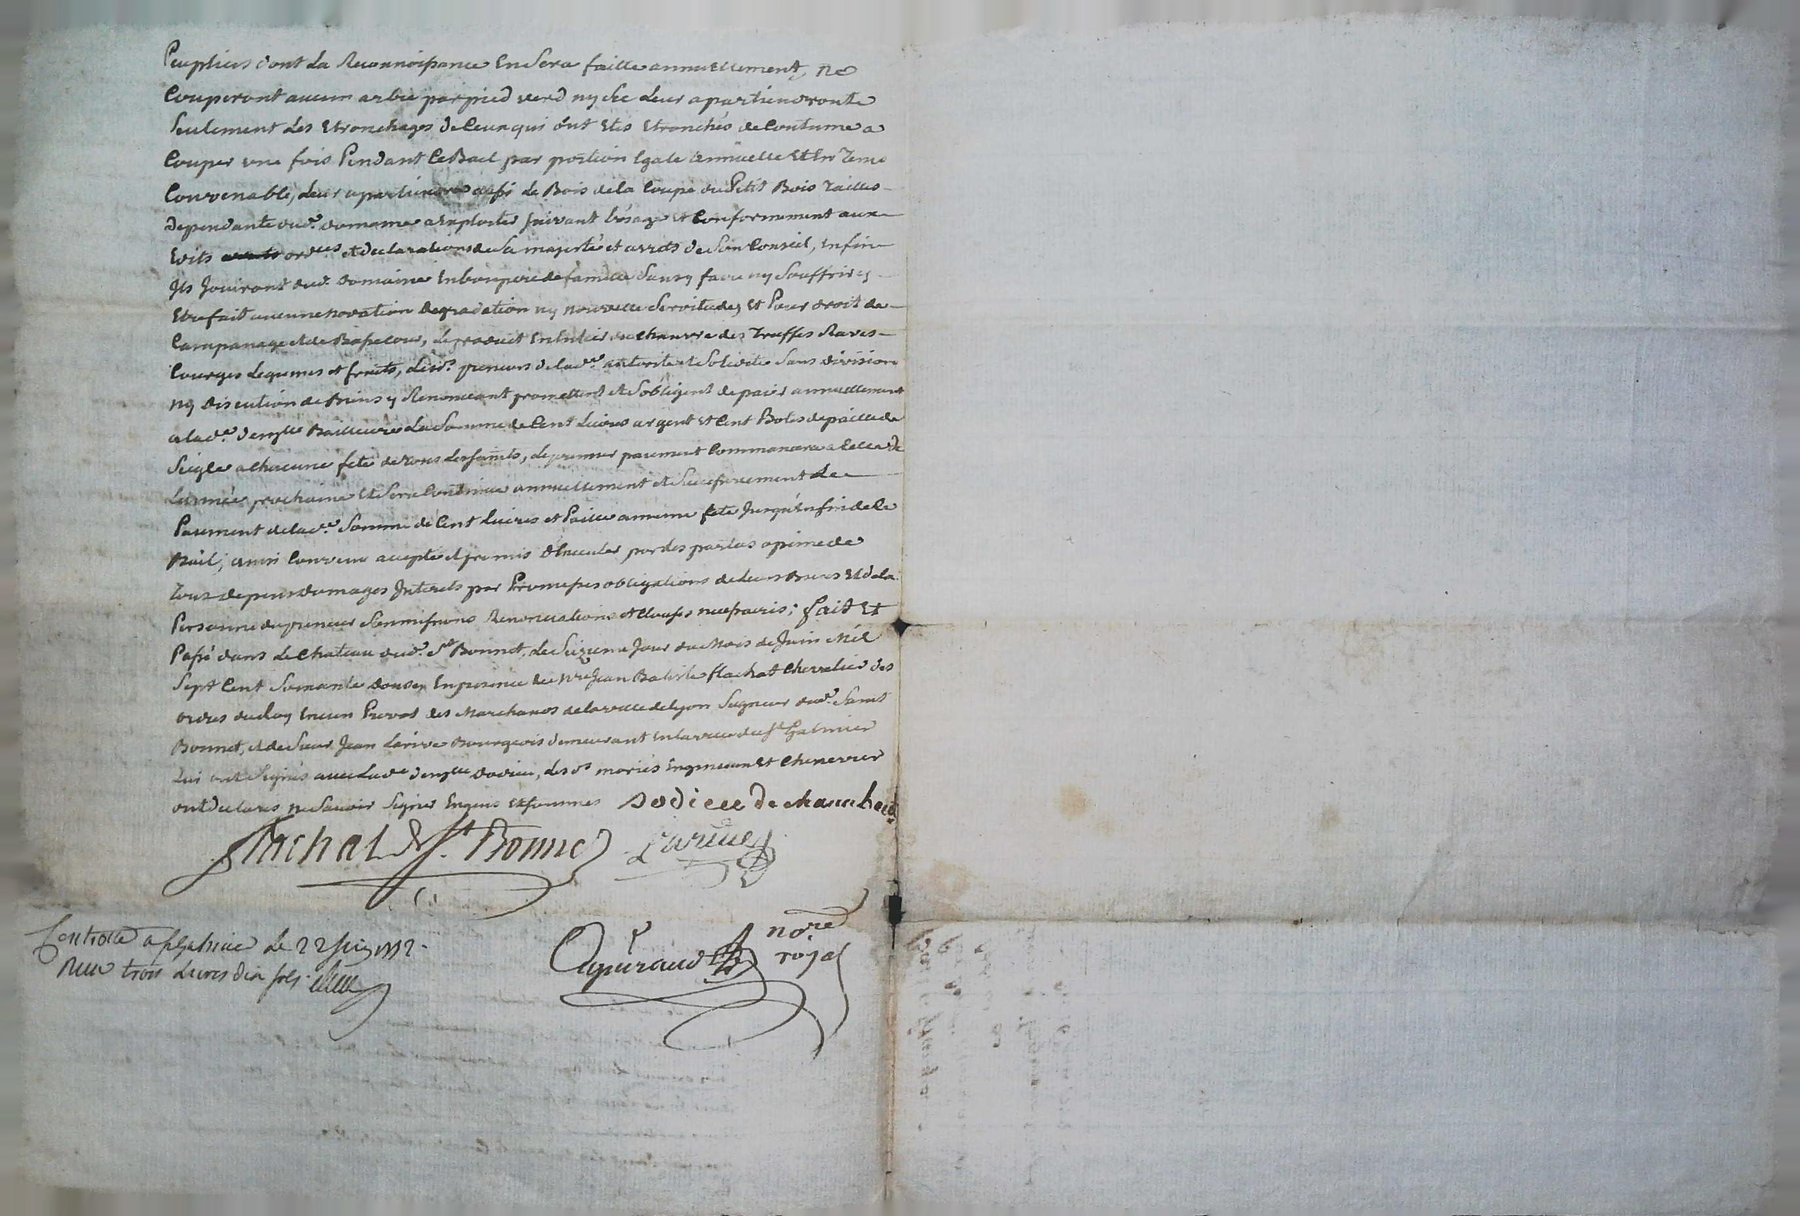 Peupliers dont La Reconnoissance En Sera faitte annuellement, ne
Couperont aucun arbre par pied verd ny sec Leur apartiendronts
Seulement Les Etronchages de Ceux qui ont Etés Etronchés de Coutume a
Couper une fois Pendant Le Bail par portion Egale Annuelle Et En Tems
Convenable, Leur apartiendra aussi Le Bois de la Coupe du Petit Bois Taillis
Dependante dud. domaine a Exploiter suivant L'usage Et Conformement aux
Edits ord.ces et declarations de Sa majesté et arrets de Son Conseil, Enfin
Ils Jouiront dud. Domaine En bon pere de famille Sans y faire ny Souffrir y
Etre fait aucune novation degradation ny nouvelle Servitude, Et Pour droit de
Campanage et de Bassecour, Le produit Entier du Chanvre des Truffes Raves
Courges Legumes et fruits, Lesd. preneurs de lad. autorité et Solidité Sans division
ny discution de Biens y Renonceant promettent et S'obligent de paier annuellement
a lad.e demlle Bailleure La Somme de Cent Livres argent Et Cent Botes de paille de
Seigle a Chacune fete de Tous Les Saints, Le premier paiement Commancera a Celle de
L'année prochaine Et Sera Continué annuellement et Successivement Le
Paiement de lad.e Somme de Cent Livres et Paille a meme fete Jusqu'en fin de Ce
Bail, ainsi Convenu accepté et promis Executer par les parties a peine de
Tous depens domages Interets par Promesses obligations de Leurs Biens Et de la
Personne du preneur Soumissions Renonciations et Clauses necessaires; fait Et
Passé dans Le Chateau dud. St Bonnet, Le Jour du Mois de Juin Mil
Sept Cent Soixante douze, En presence de Mre Jean Batiste flachat Chevalier des
ordres du Roy Encien Prevot des Marchands de la ville de Lyon Seigneur dud. Saint
Bonnet, et de Sieur Jean Larive Bourgeois demeurant En la ville de St Galmier
qui ont Signés avec Lad.e demlle Dodieu, Les d.s mariés et Chenevier
ont declarés ne Savoir Signer Enquis Et Sommés Dodieu De
flachat De St. Bonnet Larive
nore
roial
Controllé a St Galmier Le 22 Juin 1772.
Reçu trois Livres dix sols